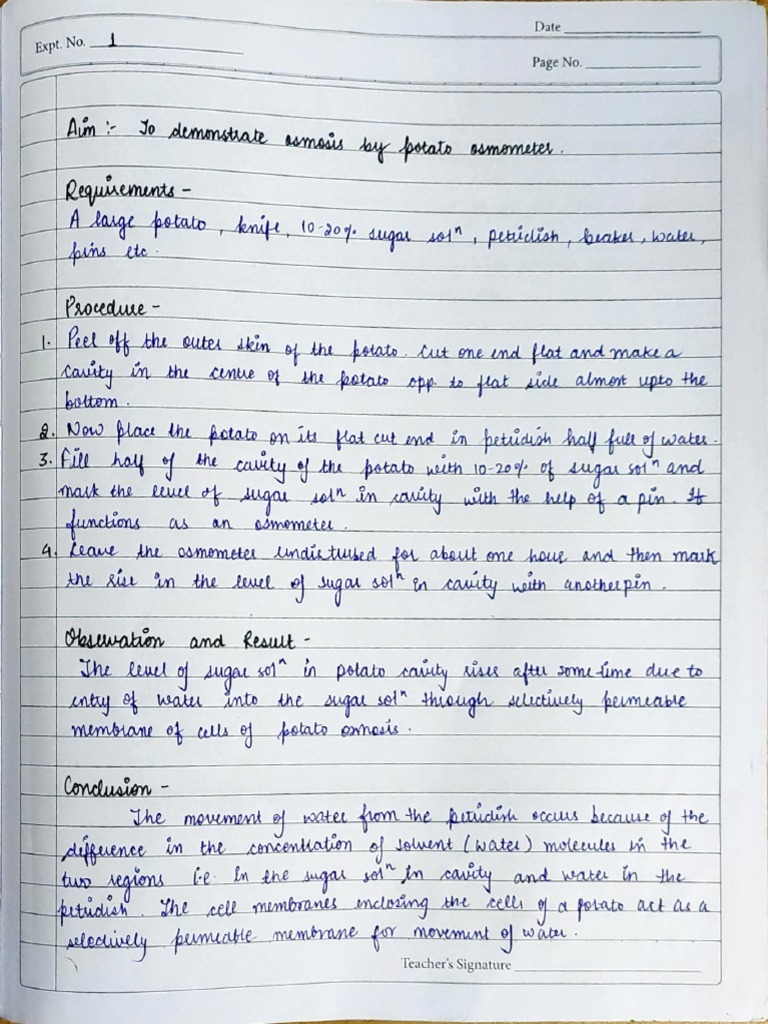 Date
Expt. No. 1
Page No.
Aim :- To demonstrate osmosis by potato osmometer.
Requirements -
A large potato, knife, 10-20% sugar solⁿ, petridish, beaker, water,
pins etc.
Procedure -
1. Peel off the outer skin of the potato. Cut one end flat and make a
cavity in the centre of the potato opp. to flat side almost upto the
bottom.
2. Now place the potato on its flat cut end in petridish half full of water.
3. Fill half of the cavity of the potato with 10-20% of sugar solⁿ and
mark the level of sugar solⁿ in cavity with the help of a pin. It
functions as an osmometer.
4. Leave the osmometer undisturbed for about one hour and then mark
the rise in the level of sugar solⁿ in cavity with another pin.
Observation and Result -
The level of sugar solⁿ in potato cavity rises after some time due to
entry of water into the sugar solⁿ through selectively permeable
membrane of cells of potato osmosis.
Conclusion -
The movement of water from the petridish occurs because of the
difference in the concentration of solvent (water) molecules in the
two regions i.e. in the sugar solⁿ in cavity and water in the
petridish. The cell membranes enclosing the cells of a potato act as a
selectively permeable membrane for movement of water.
Teacher's Signature